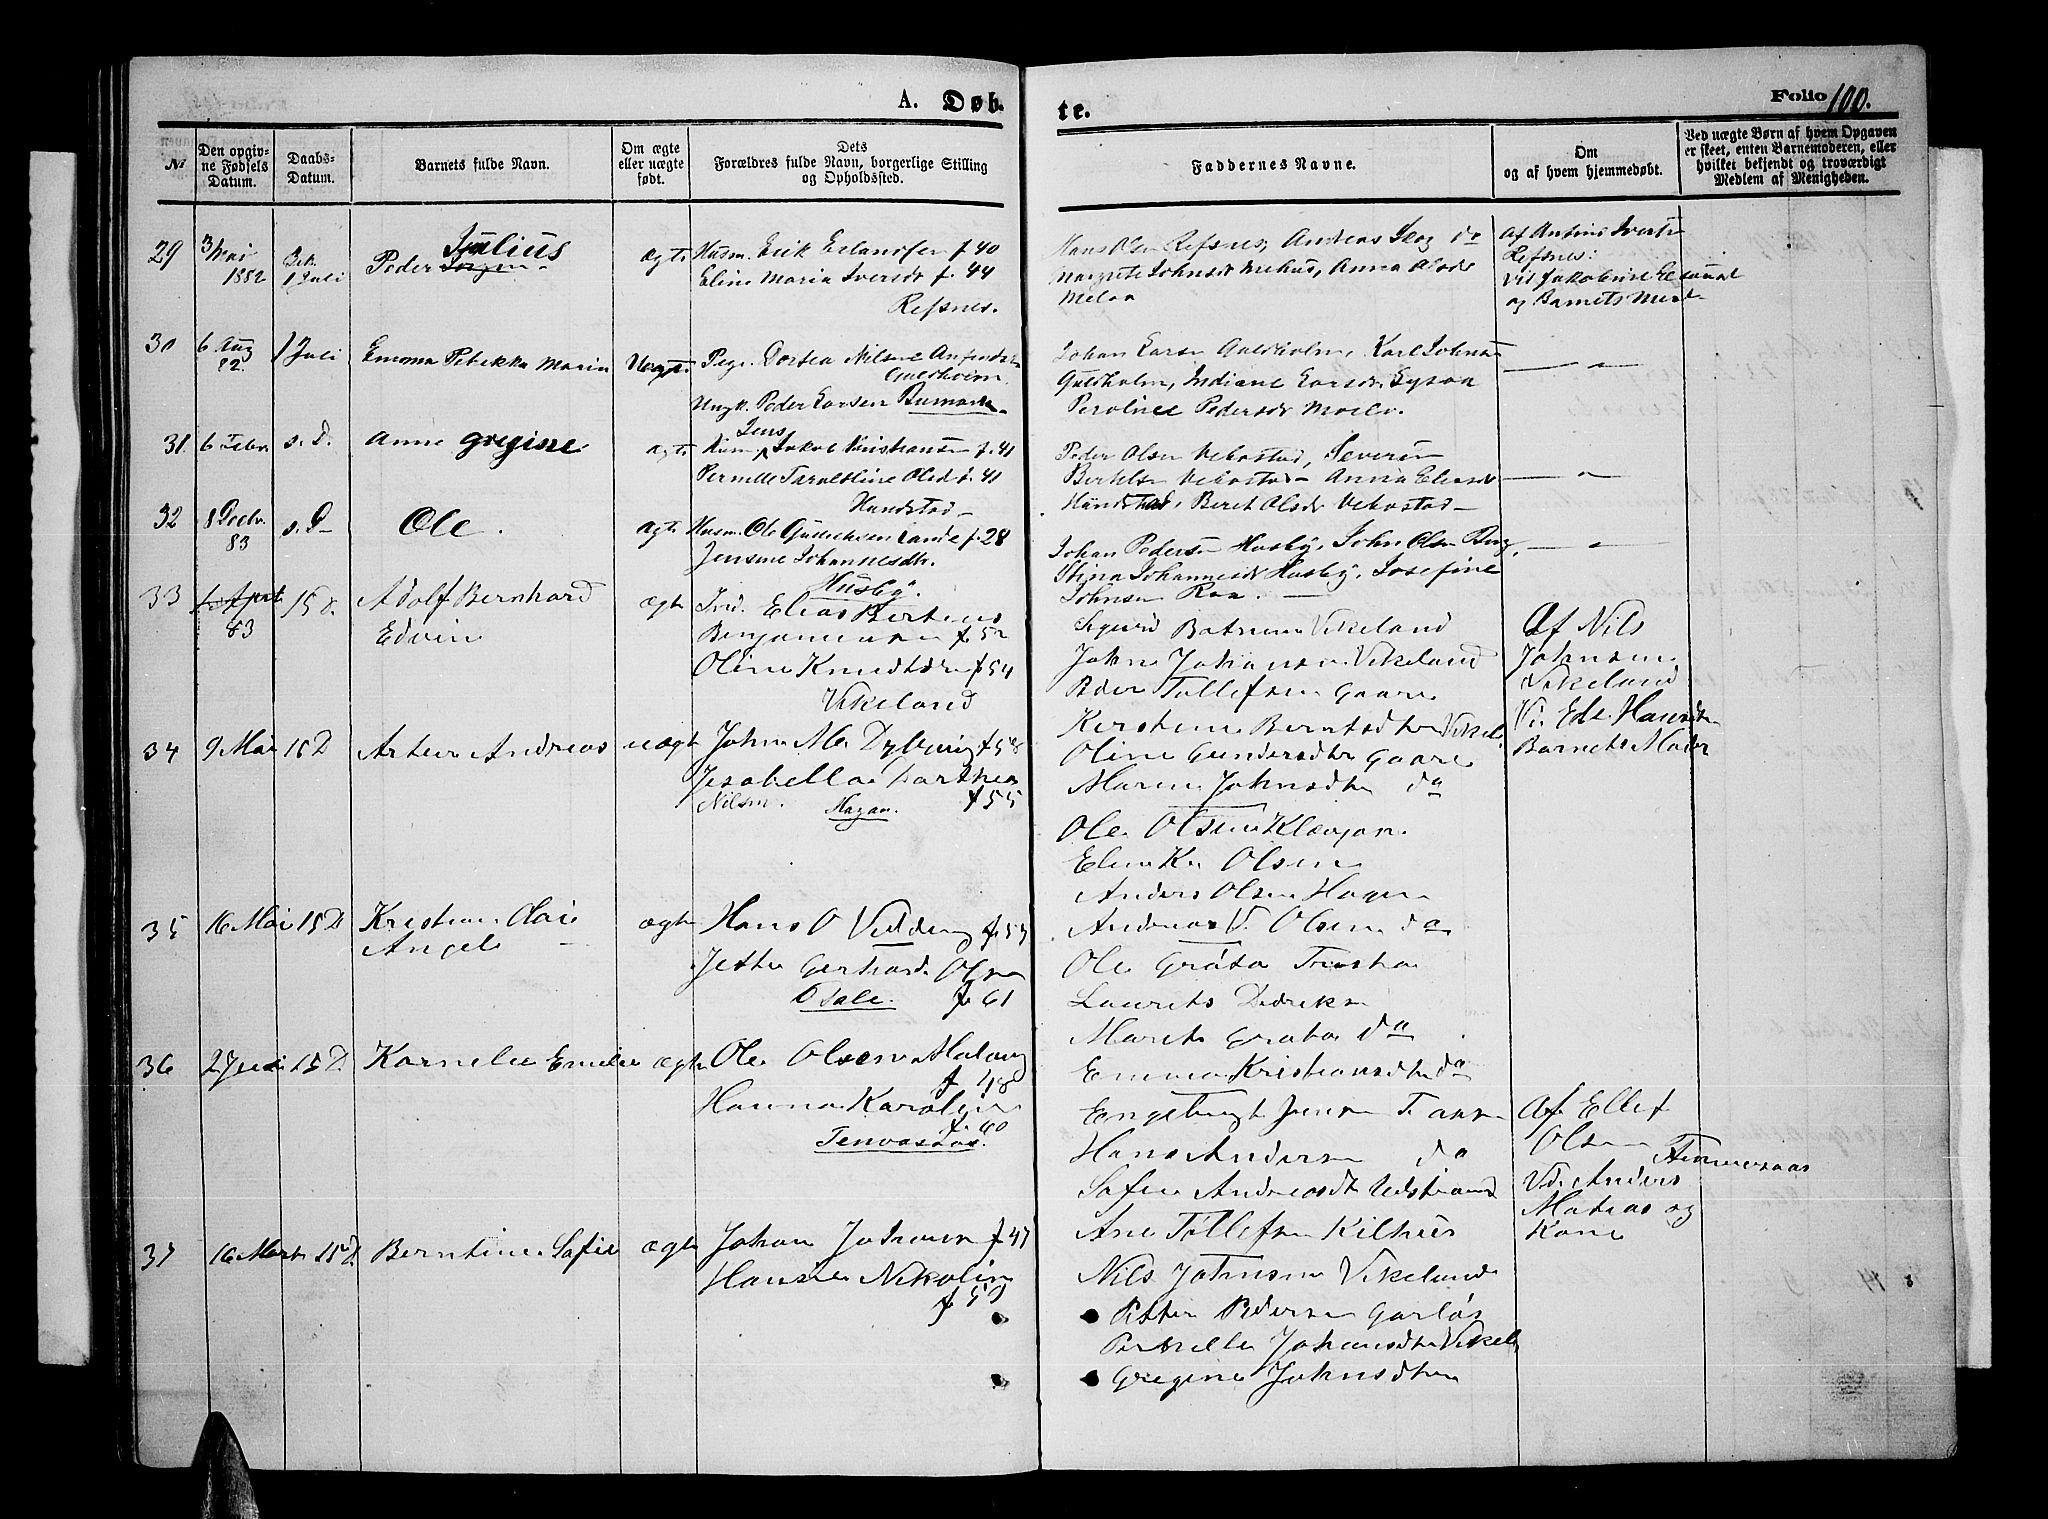 A. Døb-
te.
Folio 100.
No
Den opgiv-
ne Fødsels
Datum.
Daabs-
Datum.
Barnets fulde Navn.
Om ægte
eller uægte
født.
Dets
Forældres fulde Navn, borgerlige Stilling
og Opholdssted.
Faddernes Navne.
Om
og af hvem hjemmedøbt.
Ved uægte Børn af hvem Opgaven
er skeet, enten Barnemoderen, eller
hvilket bekjendt og troværdigt
Medlem af Menigheden.
29
3 Mai
1882
Bek.
1 Juli
Julius
Peder
ægte
Husm. Erik Erlandsen f. 40
Eline Maria Iversdr f. 44
Refsnes.
Hans Olsen Refsnes, Andreas Skog do
Margrete Johnsdr Mehus, Anna Olsdr
Melaa
Af Antine Iversdr
Refsnes:
vid Jakobine
og Barnets Mod
30
6 Aug
82.
1 Juli
Emma Petrikka Maria
Uægte
Pige. Dortea Nilsine
Guldholm
Ungk. Peder Larsen
Johan Larsen Guldholm, Karl Johns
Guldholm, Indiane Larsdr
Peroline Pedersdr
31
6 Febr
s. D.
Anne Gregine
ægte
Jens
Husm. Jakob Kristiansen f. 41
Pernelle Olsdr f. 41
Hundstad
Peder Olsen Vebostad, Severin
Bertelsen Vebostad Anna Eliasdr
Hundstad, Beret Olsdr Vebostad
32
83
s. D
Ole.
ægte
Husm. Ole Gullichsen Lande f. 28
Jensine Johannesdtr.
Husby.
Johan Pedersen Husby, John Olsen Berg,
Stina Johannesdr Husby, Josefine
Johnsen Raa.
33
83
15 d.
Adolf Bernhard
Edvin
ægte
Ind. Elias Berteus
Benjaminsen f. 52
Oline Knudsdtr f. 54
Vikeland
Sigurd Vikeland
John Johansen Vikeland
Peder Tollefsen Gaare
Kirstine Berntsdtr Vikel.
Oline Gundersdtr Gaare
Maren Johnsdtr do
Af Nils
Johnsen
Vikeland
Vi. Els. Hansdtr
Barnets Moder
34
9 Mai
15 D
Artur Andreas
uægte
John M. Dybving f. 58
Jesabella Dorthea
Nilsen. Hagan. f. 55
Ole Olsen
Elen K. Olsen
Anders Olsen Hagen
Andreas V. Olsen do
35
16 Mai
15 D
Kristian Olai
Angel
ægte
Hans O Vedding f. 53
Jette Gerhard. Olsen
Osale. f. 61
Ole Gråta
Laurits Didriksen
Marit Grata do
Emma Kristiansdtr do
36
2 Juni
15 D
Kornelie Emilie
ægte
Ole Olsen
f. 48
Hanna Karoline
f. 60
Engebregt Jensen
Hans Andersen do
Sofie Andreasdtr
Ane Tollefsen Kilhus
Af Ellef
Olsen
Vd. Anders
Matias og
Kone
37
16 Marts
15 D.
Berntine Sofie
ægte
Johan Johansen f. 47
Hansine Nikoline
f. 50
Nils Johnsen Vikeland
Petter Pedersen Garlås
Pernelle Johansdtr Vikel.
Gregine Johnsdtr